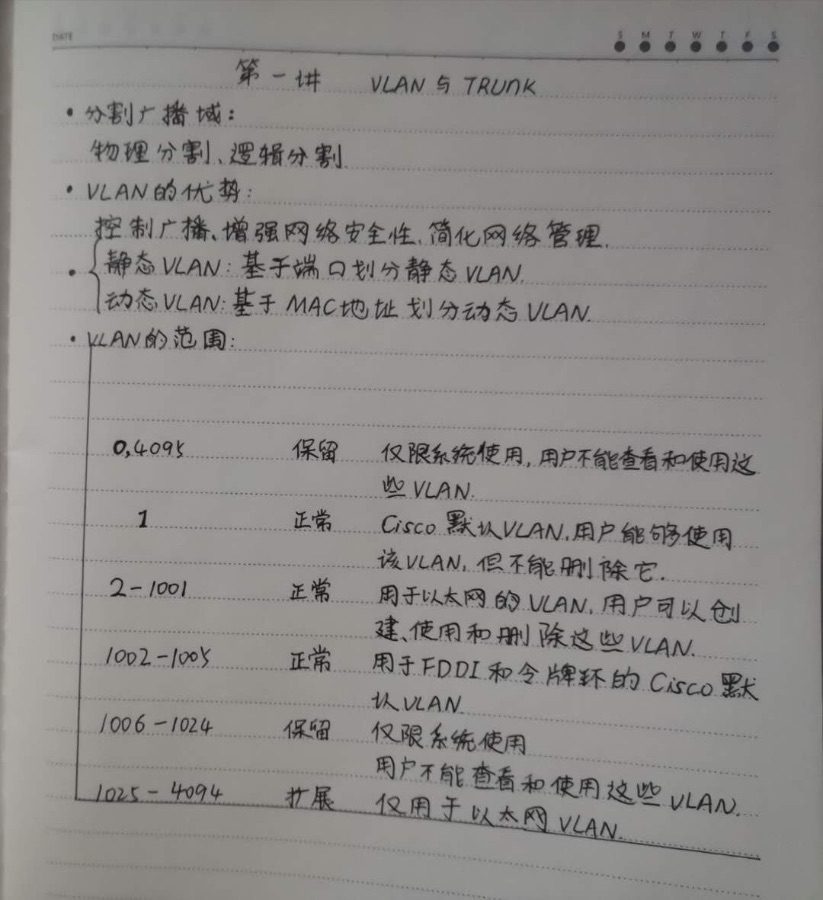 DATE
S M T W T F S
第一讲 VLAN与TRUNK
• 分割广播域:
物理分割、逻辑分割
• VLAN的优势:
控制广播、增强网络安全性、简化网络管理.
• { 静态VLAN: 基于端口划分静态VLAN.
动态VLAN: 基于MAC地址划分动态VLAN.
• VLAN的范围:
0,4095 保留 仅限系统使用,用户不能查看和使用这
些VLAN.
1 正常 Cisco默认VLAN,用户能够使用
该VLAN, 但不能删除它.
2-1001 正常 用于以太网的VLAN, 用户可以创
建、使用和删除这些VLAN.
1002-1005 正常 用于FDDI和令牌环的Cisco默
认VLAN.
1006-1024 保留 仅限系统使用
用户不能查看和使用这些VLAN.
1025-4094 扩展 仅用于以太网VLAN.